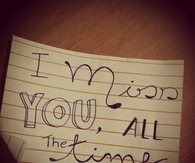 I Miss
YOU, ALL
The time